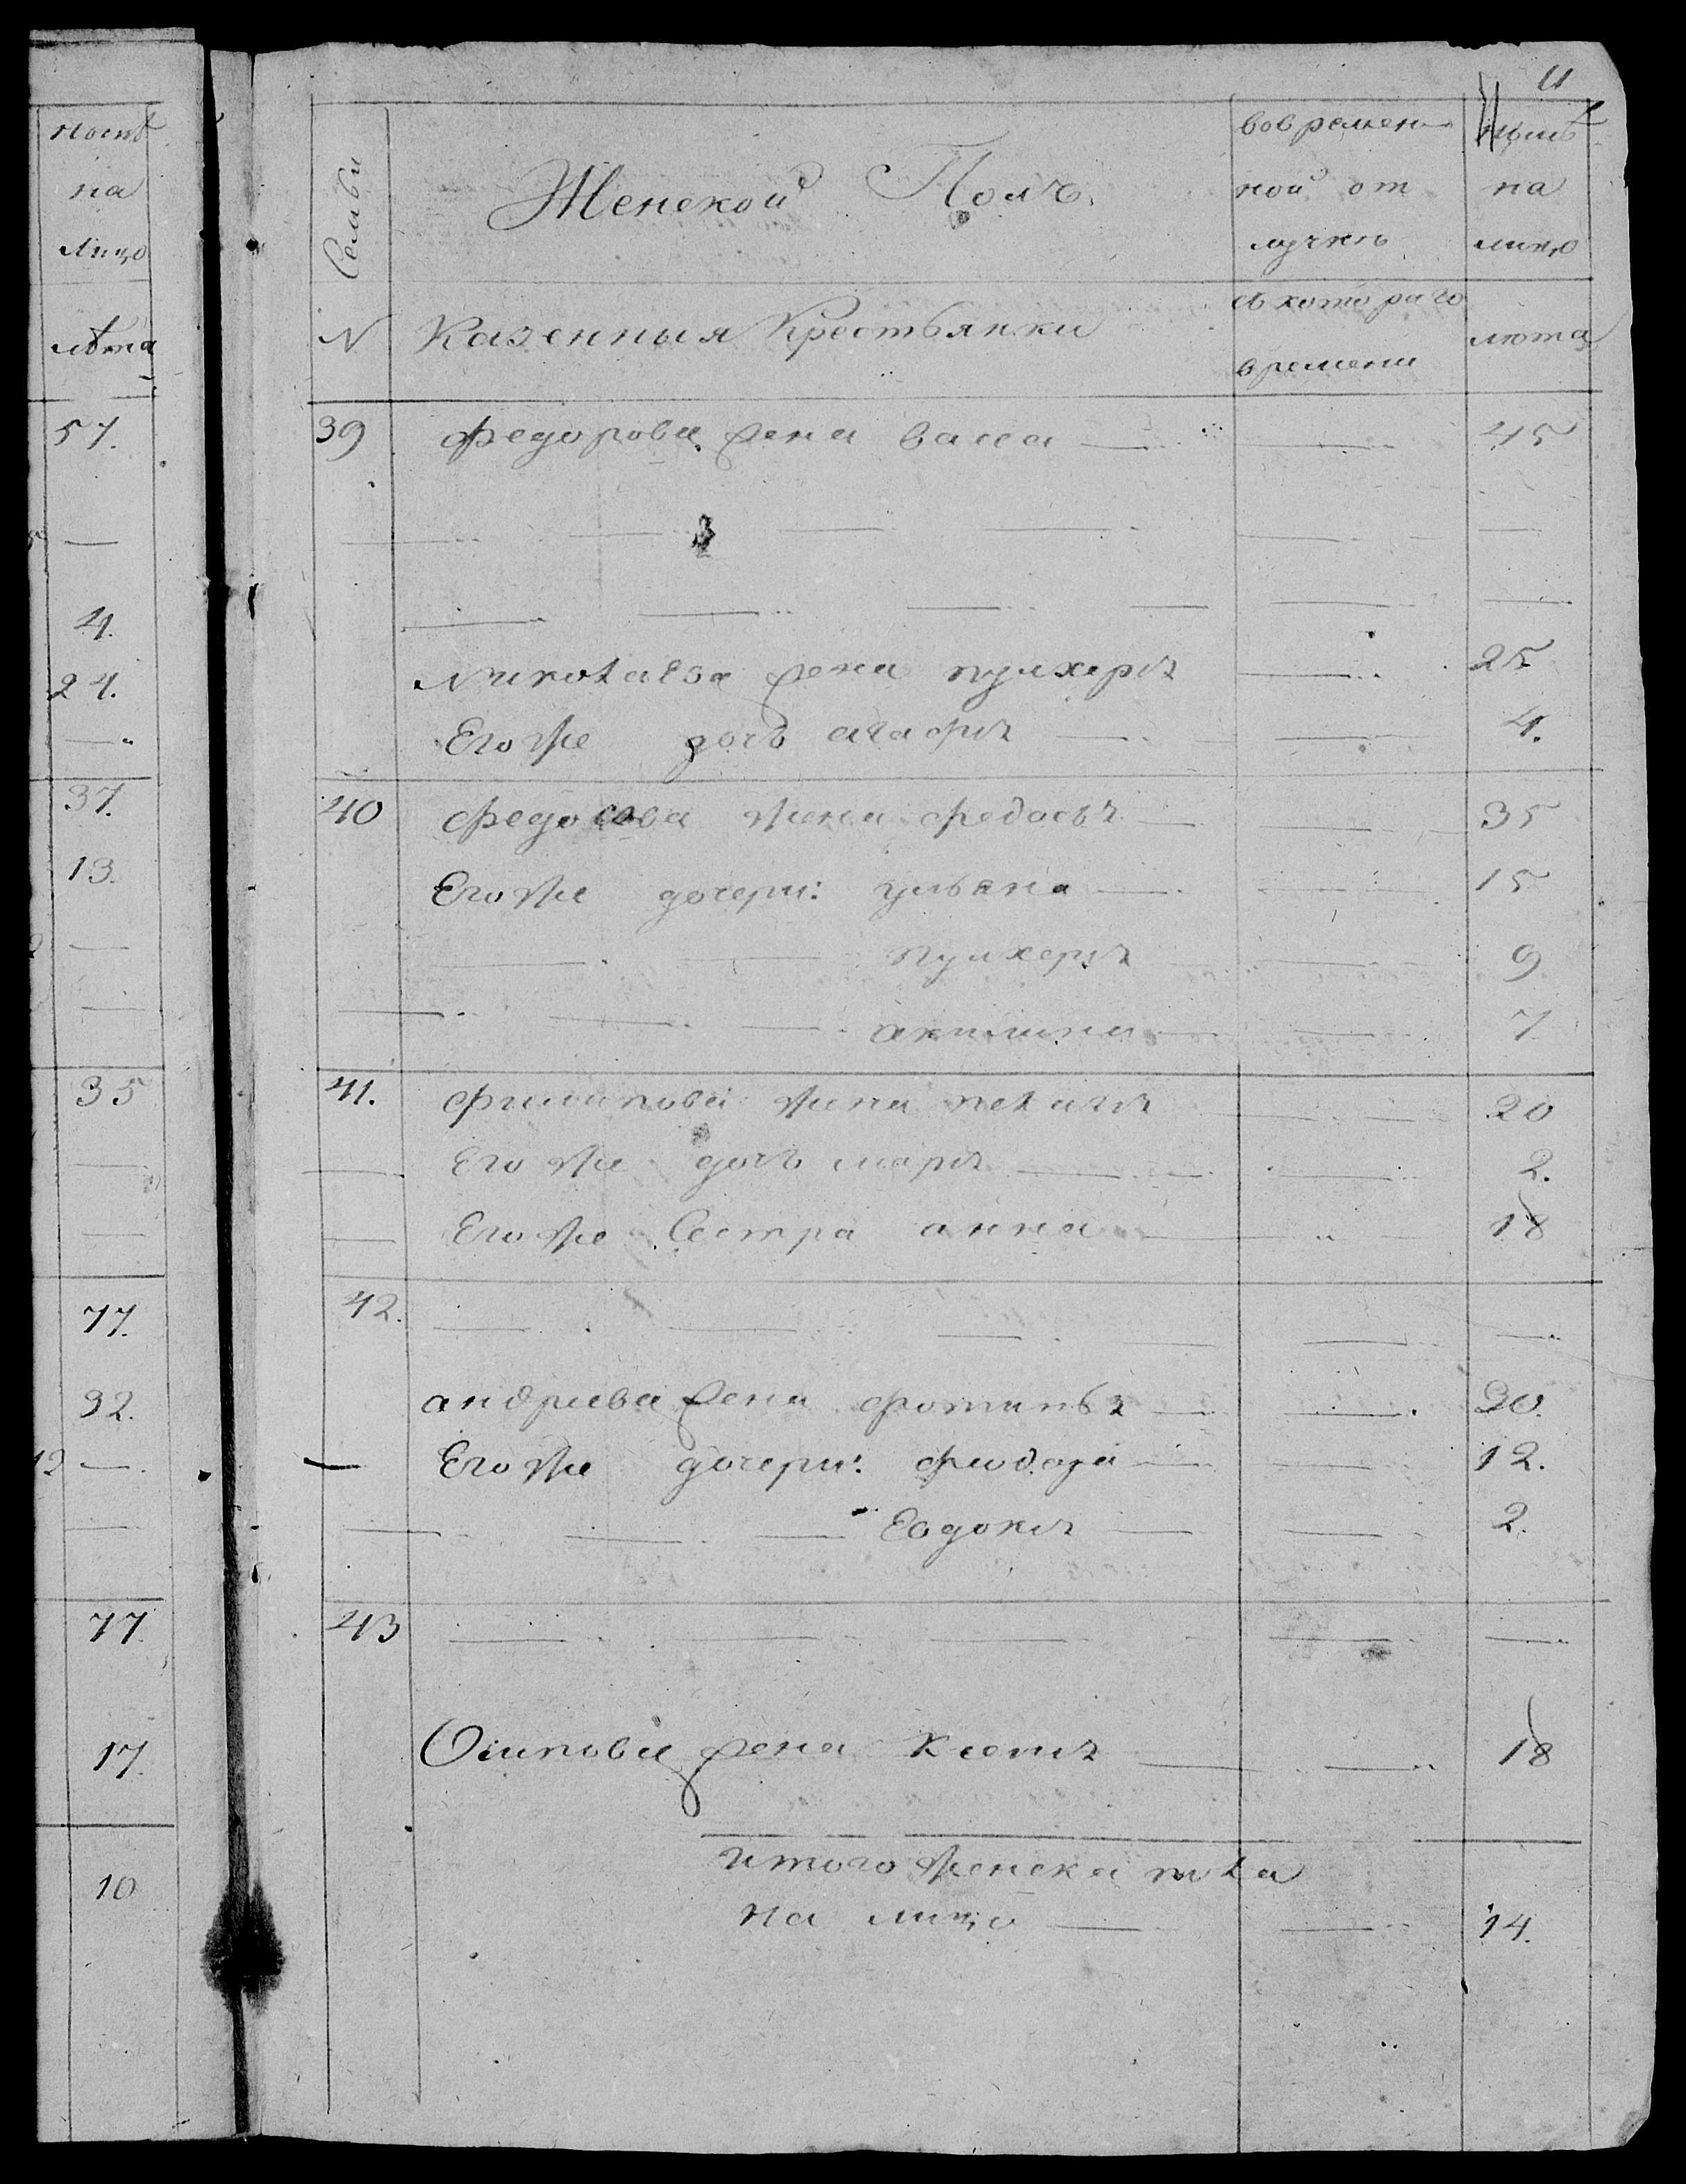 ныне
на
лицо
лѣта
57.
4.
24.
37.
13.
35
77.
32.
12
77
17.
10
11
Семьи
Женской Полъ
вовремен
ной от
лучке
ныне
на
лицо
N
Казенныя Крестьянки
съ котораго
времени
лета
39 Федорова жена васса 45
Николаева жена пулхерия 25
Его же дочь агафия 4.
40 Федосова жена федосья 35
Его же дочери: ульяна 15
пулхерия 9
акилина 7
41. Филипова жена пелагия 20
Его же дочь мария 2.
Его же Сестра анна 18
42.
андреева жена фотинья 30.
Его же дочери: фиодора 12.
Евдокия 2.
43
Осипова жена Ксения 18
итого женска пола
на лицо 14.